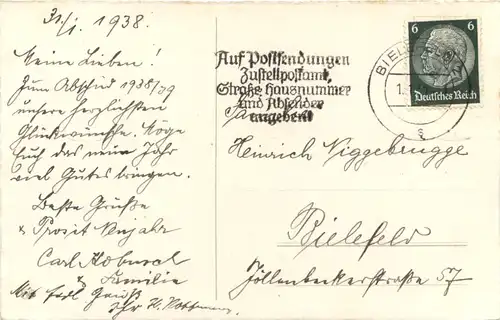 31/1. 1938.
Meine Lieben!
Zum Abschied 1938/39
unsere herzlichsten
Glückwünsche. Möge
Euch das neue Jahr
viel Gutes bringen.
Beste Grüße
& Prosit Neujahr
Carl
& Familie
Mit herzl. Gruß
Ihr H.
Auf Postsendungen
Zustellpostamt,
Straße, Hausnummer
und Absender
angeben!
BIELEFELD
1.
s
6 6
Deutsches Reich
Fam.
Heinrich Niggebrügge
Bielefeld
Jöllenbeckerstraße 57